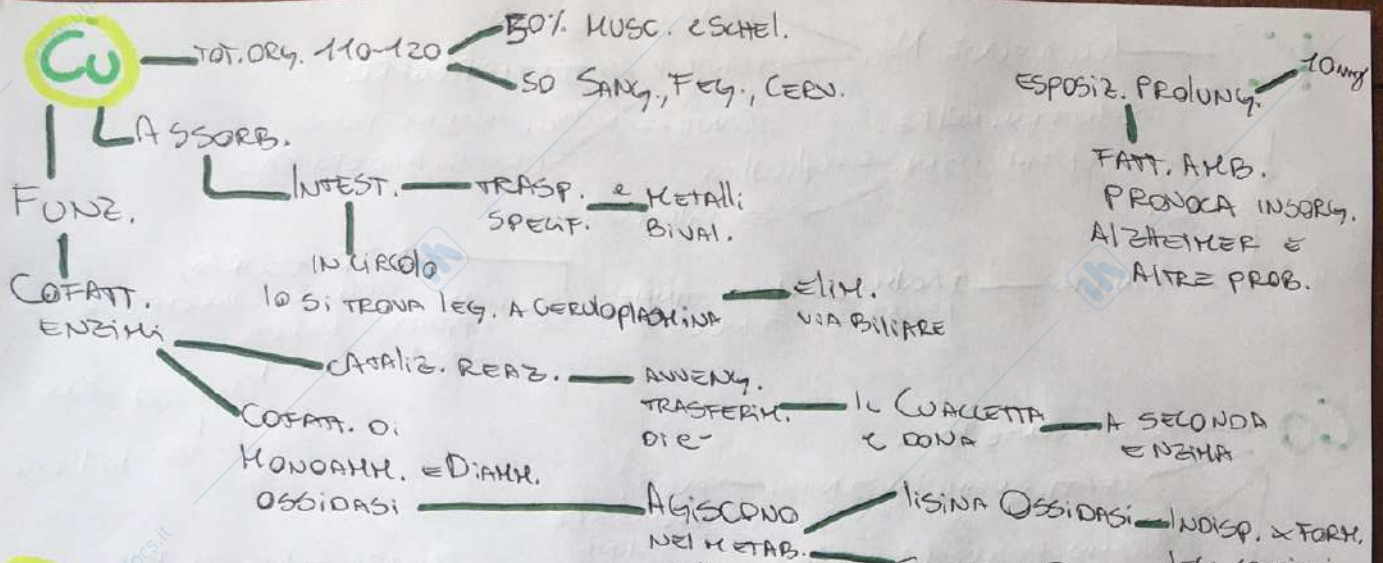 Cu
TOT. ORG. 110-120
50% MUSC. e SCHEL.
50 SANG., FEG., CERV.
ESPOSIZ. PROLUNG.
10mg
FATT. AMB.
PROVOCA INSORG.
ALZHEIMER E
ALTRE PROB.
ASSORB.
INTEST.
TRASP.
SPECIF.
e METALLI
BIVAL.
IN CIRCOLO
lo SI TROVA LEG. A CERULOPLASMINA
ELIM.
VIA BILIARE
FUNZ.
COFATT.
ENZIMI
CATALIZ. REAZ.
AVVENG.
TRASFERIM.
DI e-
IL CU ACCETTA
E DONA
A SECONDA
ENZIMA
COFATT. DI
MONOAMM. E DIAMM.
OSSIDASI
AGISCONO
NEI METAB.
LISINA OSSIDASI
INDISP. x FORM.